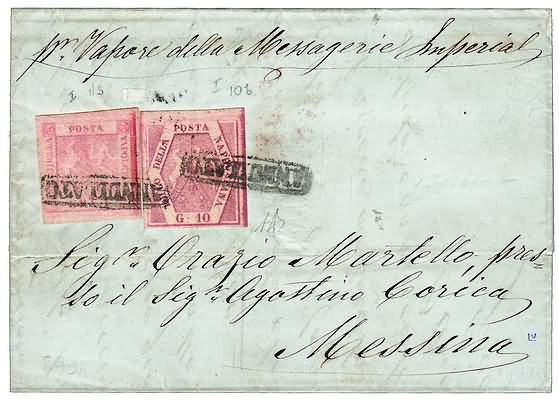 pr. Vapore della Messagerie Imperial
I 1/3 I 10b
POSTA
POSTA
BOLLO DELLA
NAPOLETANA
G. 10
ANNULLATO
ANNULLATO
Sigr. Orazio Martello, pres=
so il Sigr. Agostino Corica
Messina